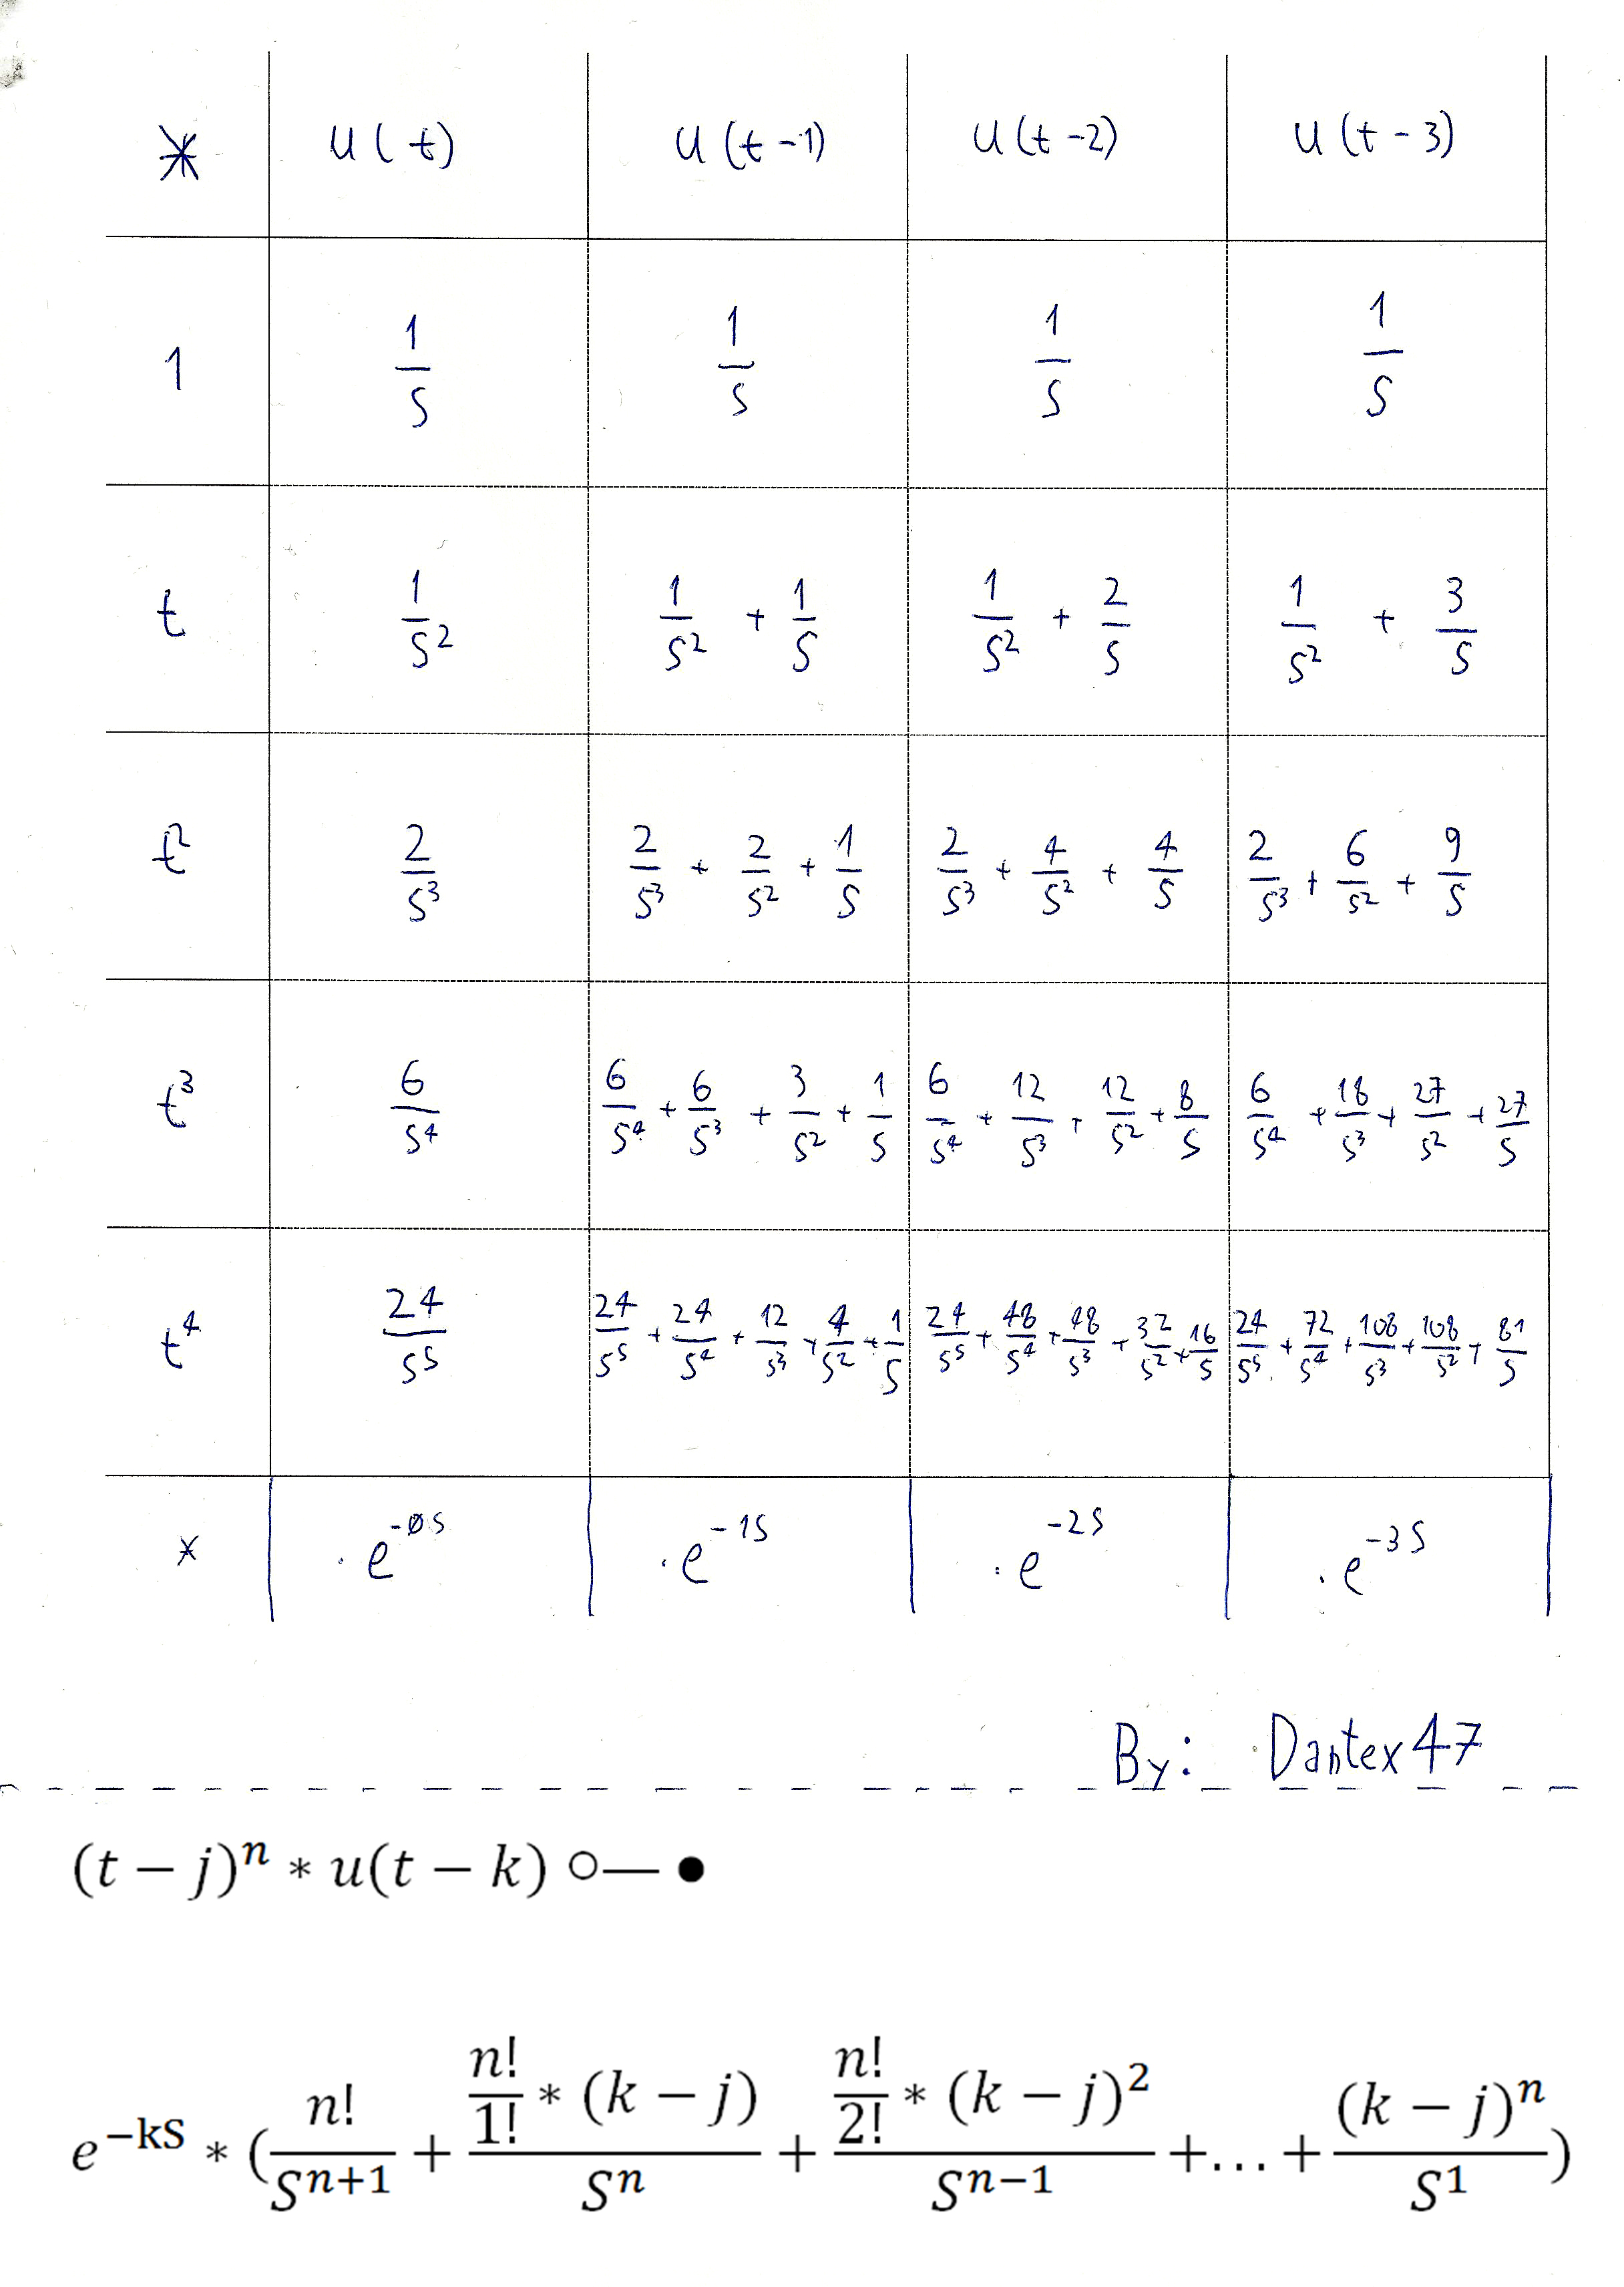 * u(t) u(t-1) u(t-2) u(t-3)
1 1/s 1/s 1/s 1/s
t 1/s² 1/s² + 1/s 1/s² + 2/s 1/s² + 3/s
t² 2/s³ 2/s³ + 2/s² + 1/s 2/s³ + 4/s² + 4/s 2/s³ + 6/s² + 9/s
t³ 6/s⁴ 6/s⁴ + 6/s³ + 3/s² + 1/s 6/s⁴ + 12/s³ + 12/s² + 8/s 6/s⁴ + 18/s³ + 27/s² + 27/s
t⁴ 24/s⁵ 24/s⁵ + 24/s⁴ + 12/s³ + 4/s² + 1/s 24/s⁵ + 48/s⁴ + 48/s³ + 32/s² + 16/s 24/s⁵ + 72/s⁴ + 108/s³ + 108/s² + 81/s
* ·e^(-0s) ·e^(-1s) ·e^(-2s) ·e^(-3s)
By: Dantex47
(t − j)ⁿ * u(t − k) ○— ●
e^(−kS) * (n!/Sⁿ⁺¹ + (n!/1! * (k − j))/Sⁿ + (n!/2! * (k − j)²)/Sⁿ⁻¹ +…+ (k − j)ⁿ/S¹)